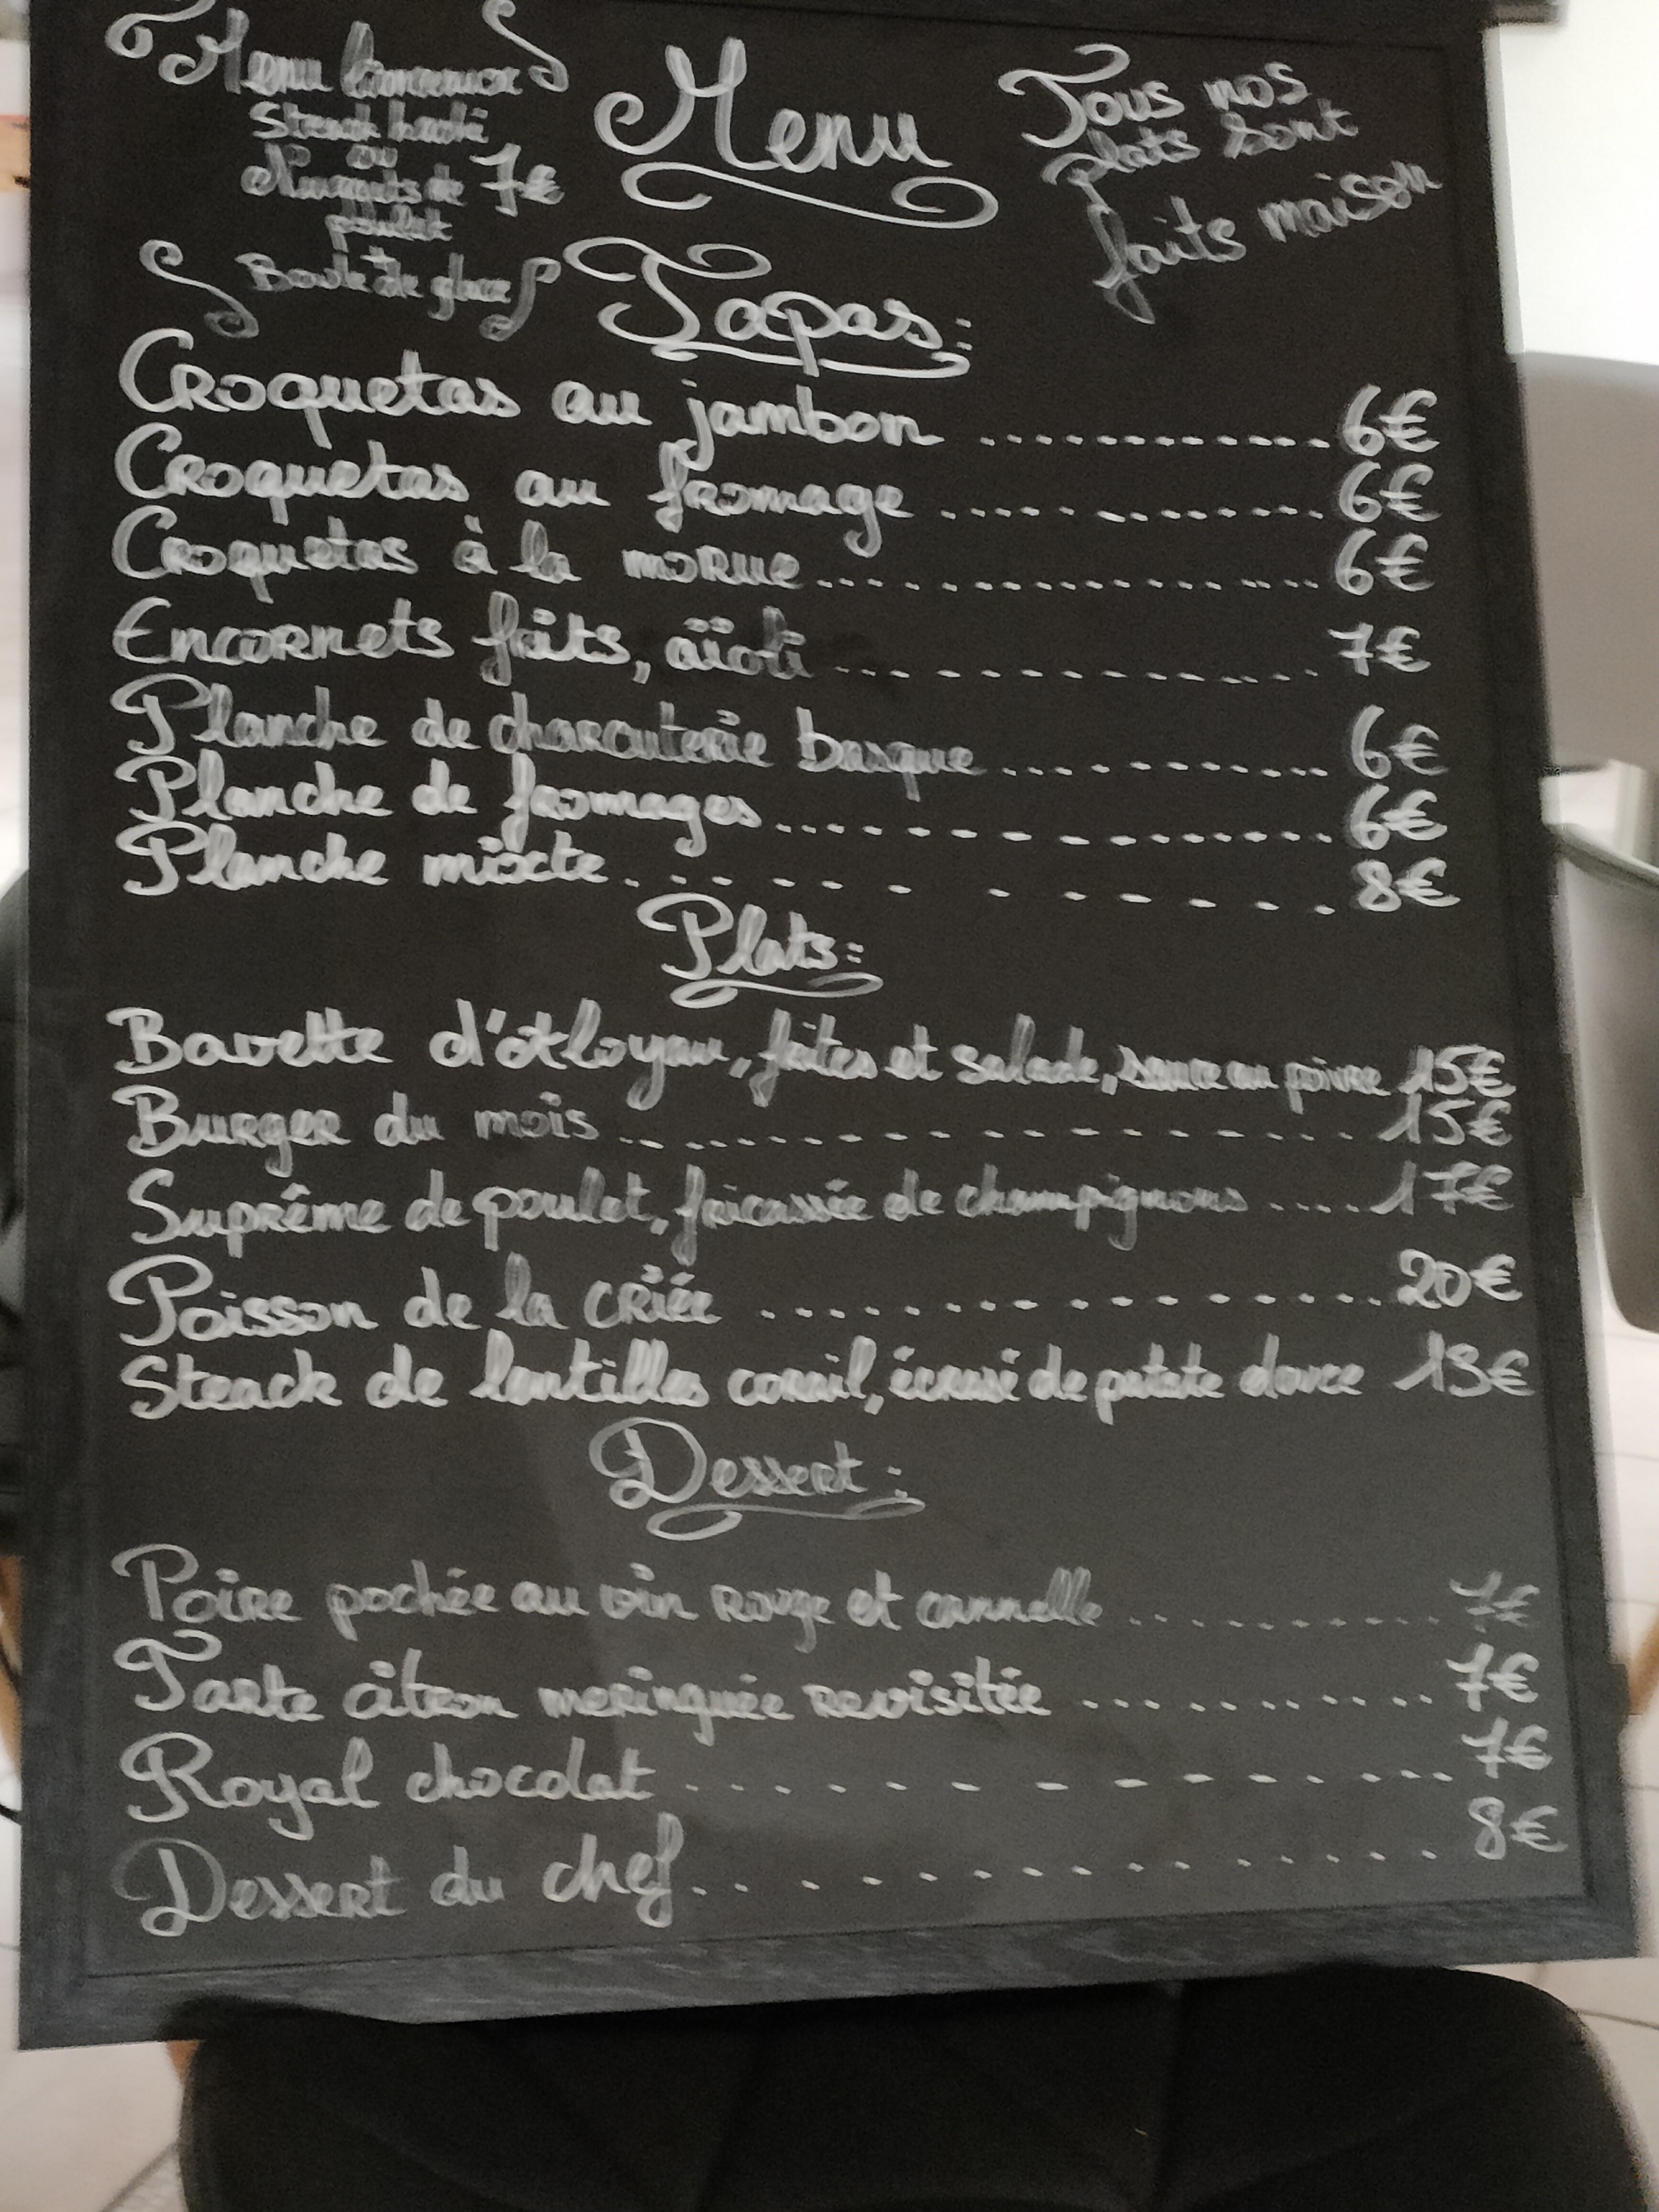 Menu
Steack haché
ou
Nuggets de 7€
poulet
+
Boule de glace
Menu
Tous nos
plats sont
faits maison
Tapas:
Croquetas au jambon ............ 6€
Croquetas au fromage ............ 6€
Croquetas à la morue ............ 6€
Encornets frits, aïoli ............ 7€
Planche de charcuterie basque ............ 6€
Planche de fromages ............ 6€
Planche mixte ............ 8€
Plats:
Bavette d'Aloyau, frites et salade, sauce au poivre 15€
Burger du mois ............ 15€
Suprême de poulet, fricassée de champignons .... 17€
Poisson de la criée ............ 20€
Steack de lentilles corail, écrasé de patate douce 13€
Dessert:
Poire pochée au vin rouge et cannelle ............ 7€
Tarte citron meringuée revisitée ............ 7€
Royal chocolat ............ 7€
Dessert du chef ............ 8€